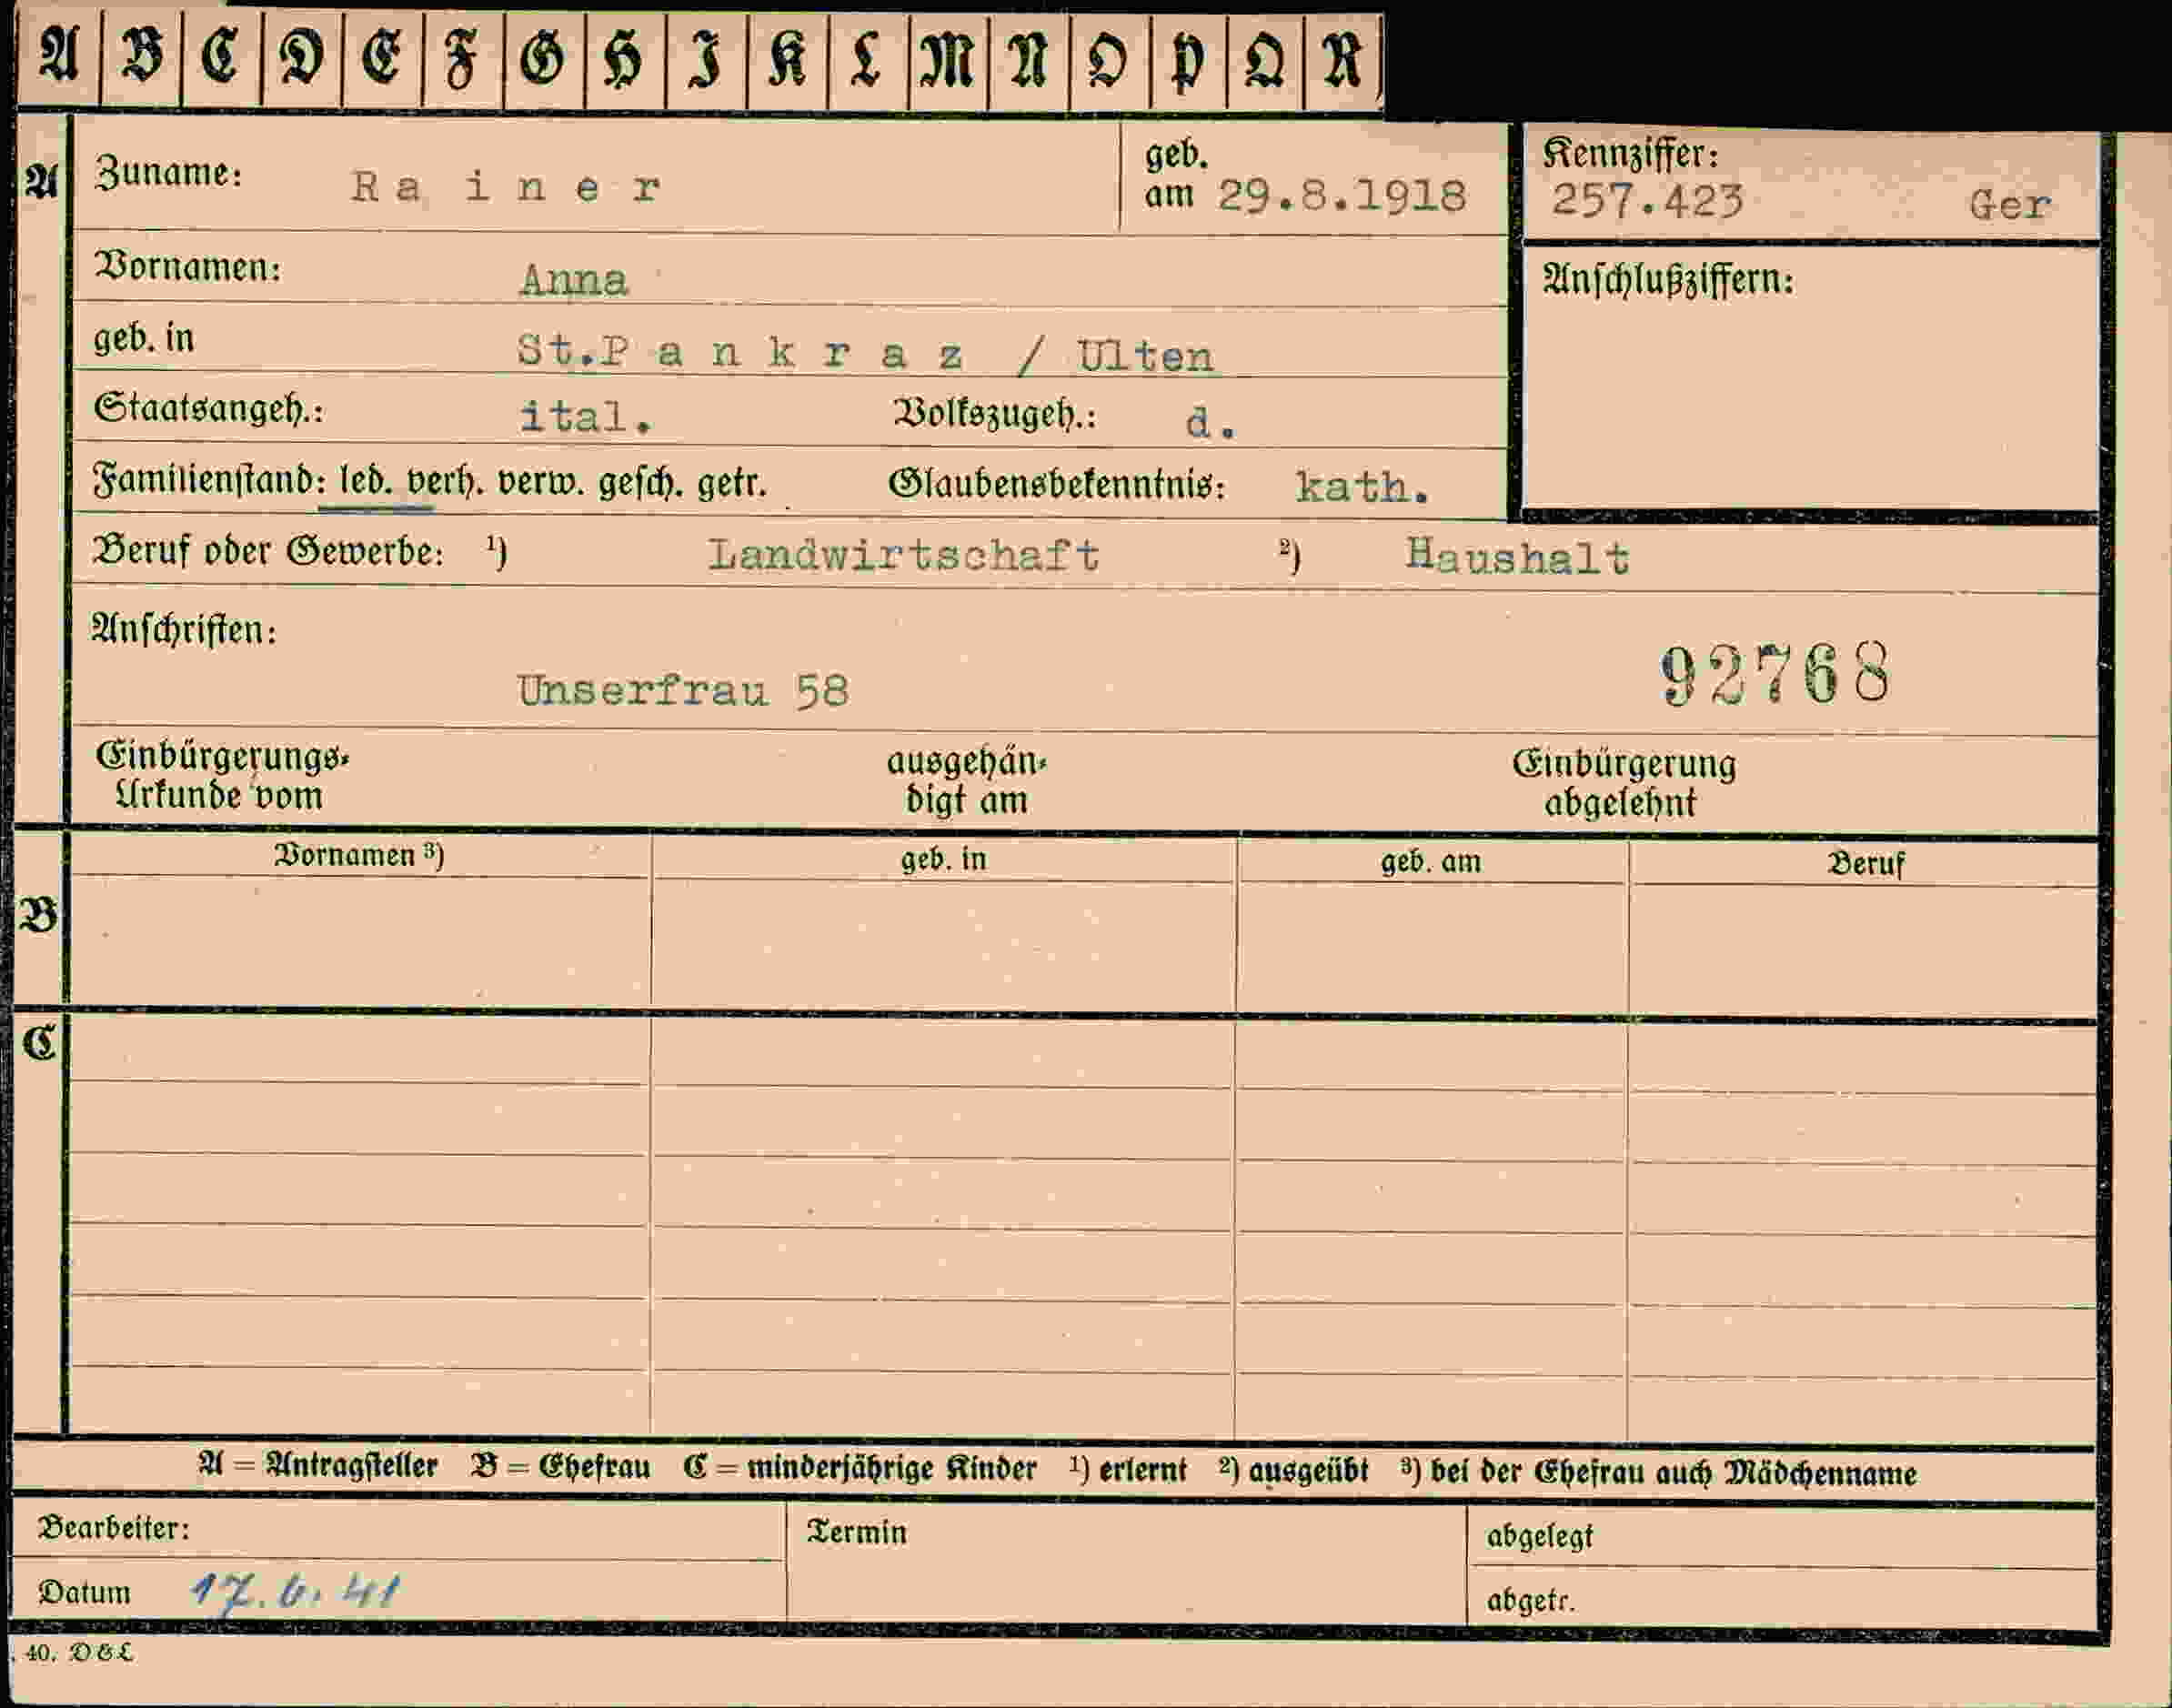 A B C D E F G H I K L M N O P Q R
A Zuname: Rainer geb. am 29.8.1918 Kennziffer: 257.423 Ger
Vornamen: Anna Anschlußziffern:
geb. in St.Pankraz / Ulten
Staatsangeh.: ital. Volkszugeh.: d.
Familienstand: led. verh. verw. gesch. getr. Glaubensbekenntnis: kath.
Beruf oder Gewerbe: 1) Landwirtschaft 2) Haushalt
Anschriften:
Unserfrau 58 92768
Einbürgerungs- ausgehän- Einbürgerung
Urkunde vom digt am abgelehnt
Vornamen 3) geb. in geb. am Beruf
B
C
A = Antragsteller B = Ehefrau C = minderjährige Kinder 1) erlernt 2) ausgeübt 3) bei der Ehefrau auch Mädchenname
Bearbeiter: Termin abgelegt
Datum 17.6.41 abgetr.
40. D&L